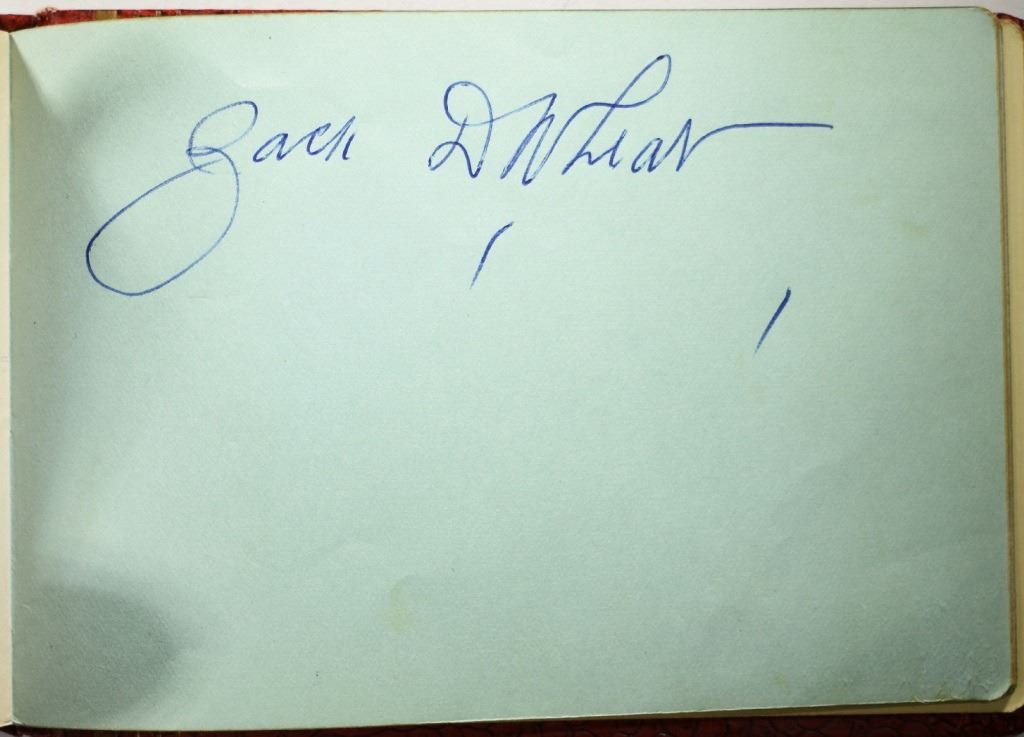 Zack D Wheat